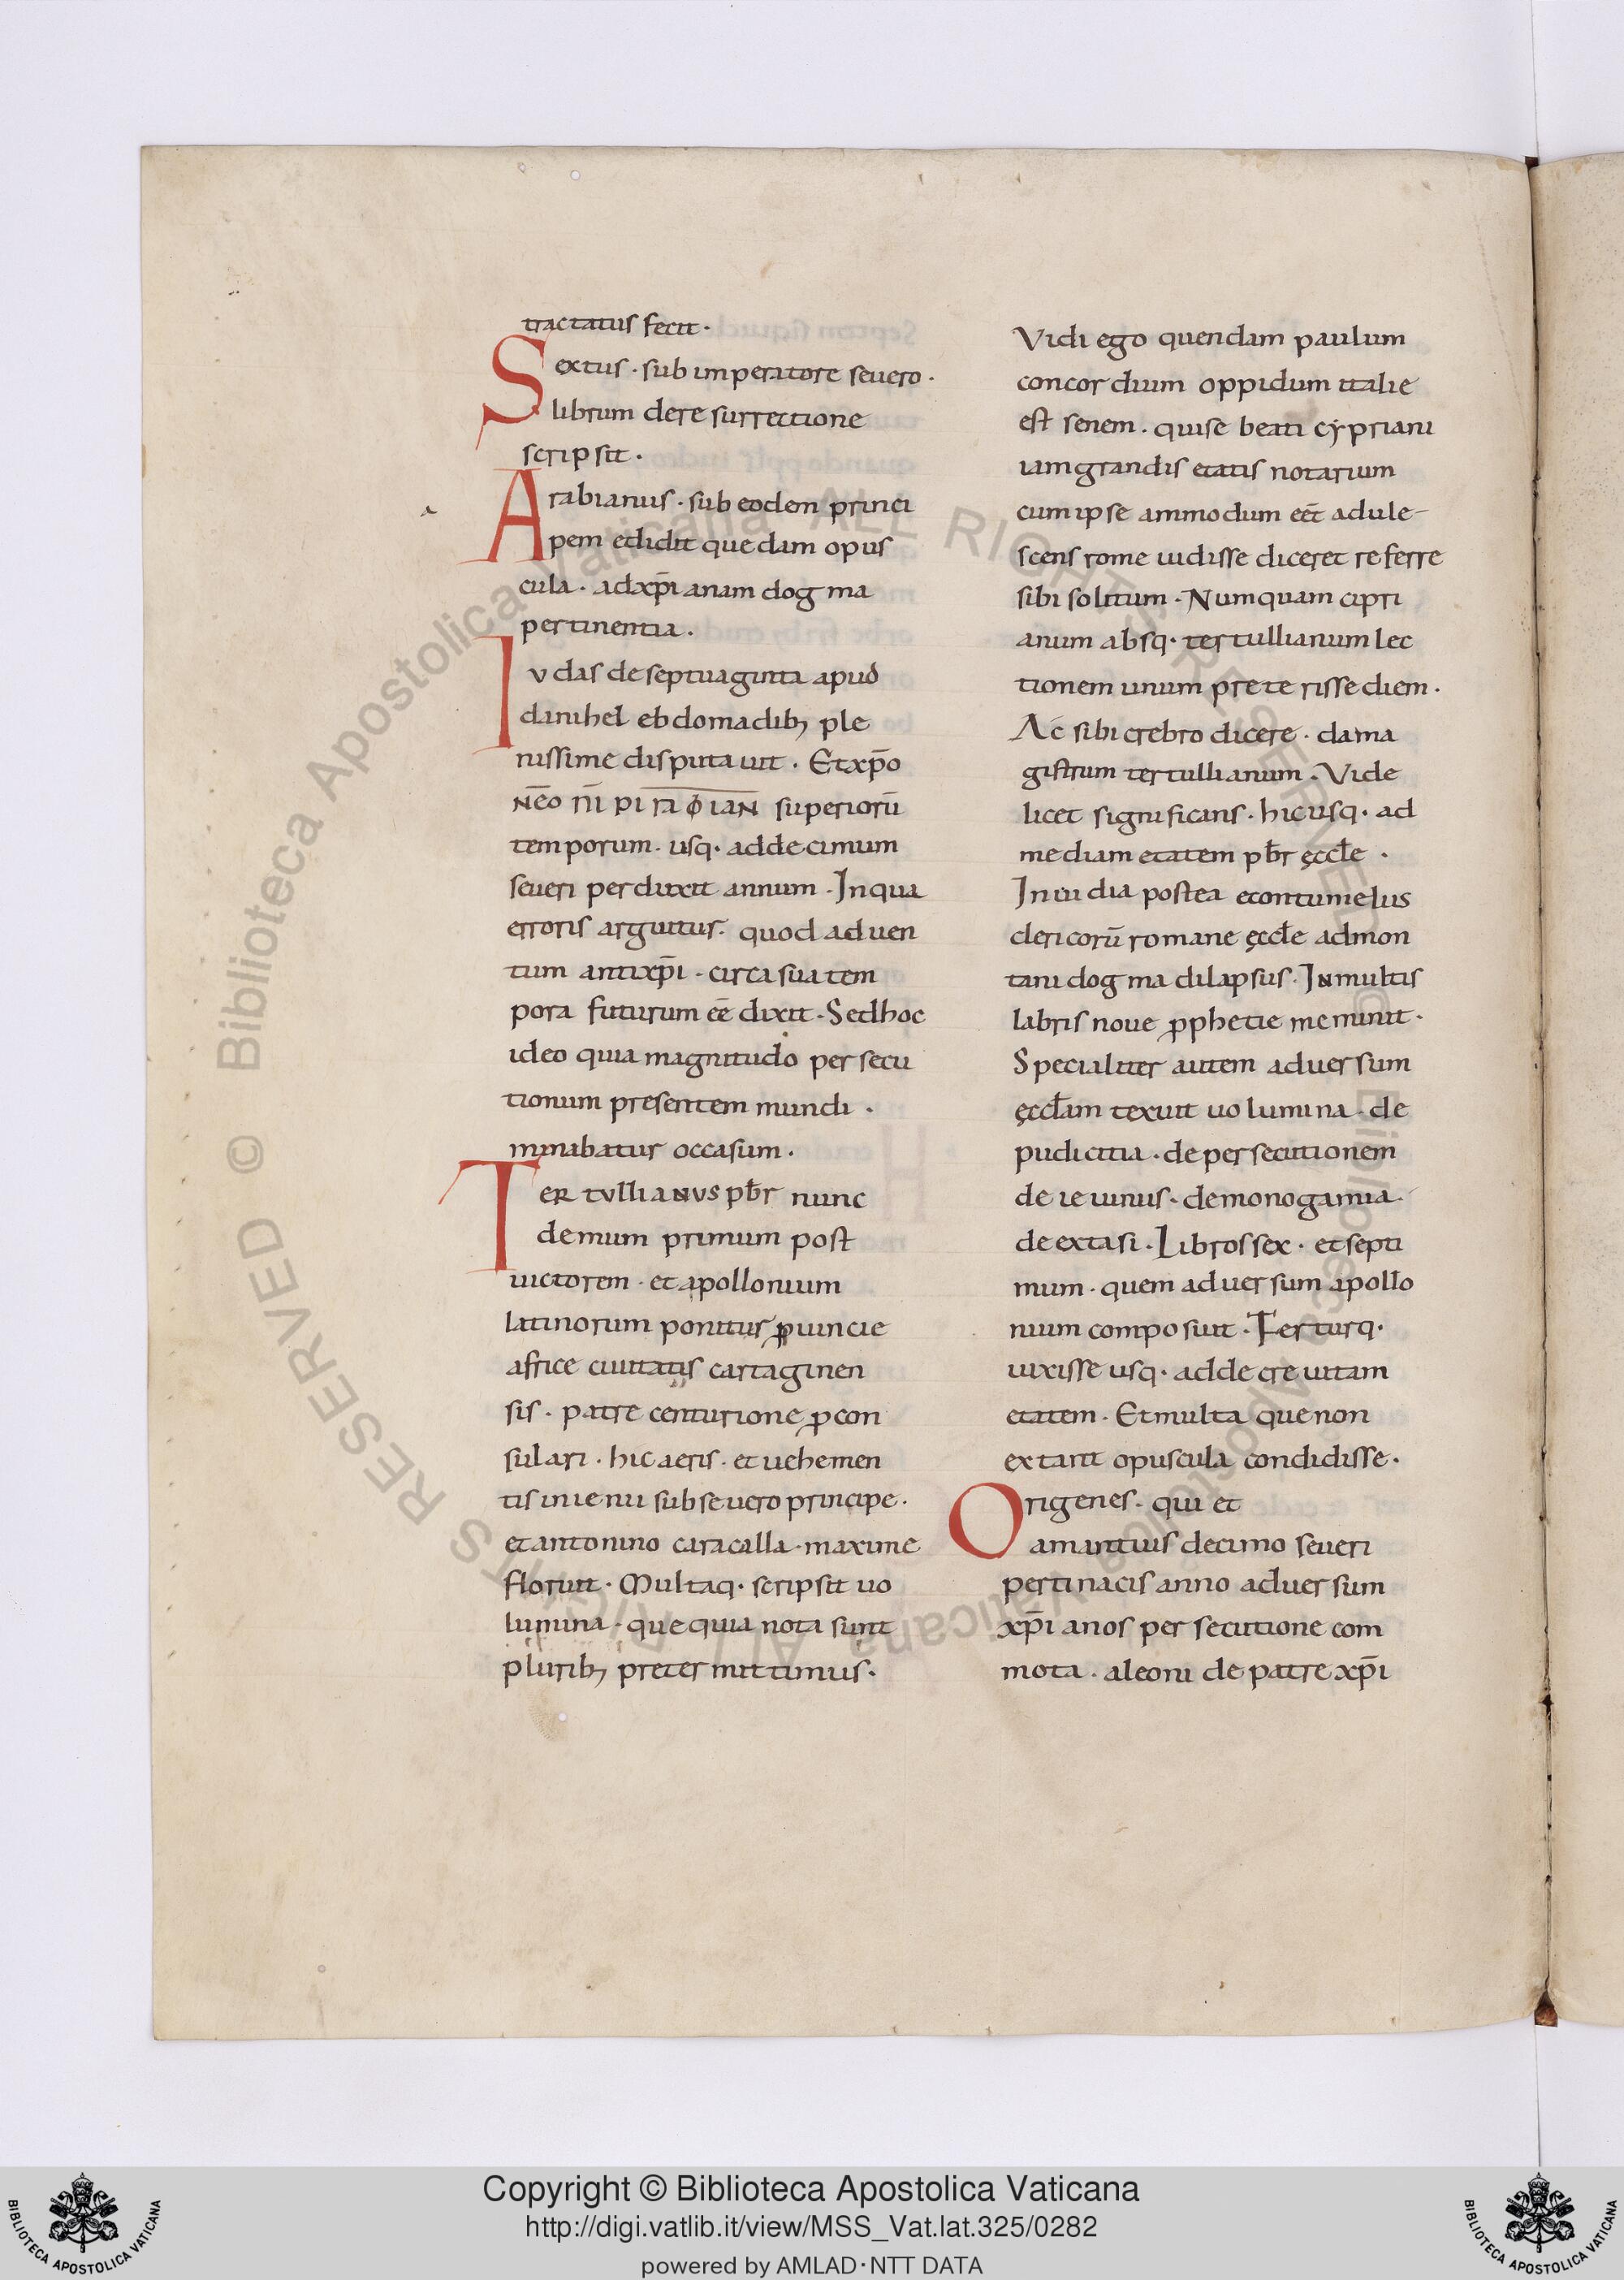 tractatus fecit·
Sextus · sub imperatore seuero·
librum dere surrectione
scripsit·
Arabianus · sub eodem princi
pem edidit que dam opus
cula · adxp̄i anam dog ma
pertinentia·
Iudas de septuaginta apud
danihel ebdomadib; ple
nissime disputauit · Etxp̄o
superiorū
temporum· usq· addecimum
seueri perduxit annum · Inqua
erroris arguitur· quod aduen
tum antixp̄i · circa sua tem
pora futurum eē dixit · Sedhoc
ideo quia magnitudo persecu
tionum presentem mundi ·
minabatur occasum·
Tertullianus pb̄r nunc
demum primum post
uictorem · et apollonium
latinorum ponitur ꝓuincie
africe ciuitatis cartaginen
sis · patre centurione ꝓcon
sulari · hic acris · et uehemen
tis inienii subseuero principe·
et antonino caracalla · maxime
floruit · Multaq· scripsit uo
lumina · que quia nota sunt
plurib; pretermittimus·
Vidi ego quendam paulum
concordium oppidum italie
est senem · quise beati cypriani
iamgrandis etatis notarium
cumipse ammodum eēt adule-
scens rome uidisse diceret referre
sibi solitum · Numquam cipri
anum absq· tertullianum lec
tionem unum preterisse diem·
Ac sibi crebro dicere · dama
gistrum tertullianum · Vide
licet significans · hicusq· ad
mediam etatem pb̄r ęccłe ·
Inuidia postea econtumelus
clericorū romane ęccłe admon
tani dogma dilapsus · Inmultis
labris noue ꝓphetie meminit·
Specialiter autem aduersum
ęccłam texuit uolumina · de
pudicitia · de persecutionem
de ieiunus · demonogamia·
de extasi · Libros sex · et septi
mum · quem aduersum apollo
nium composuit · Ferturq·
uixisse usq· addecre uitam
etatem · Et multa que non
extant opuscula condidisse·
Origenes · qui et
amantius decimo seueri
pertinacis anno aduersum
xp̄i anos persecutione com
mota · aleoni de patre xp̄i
© Biblioteca Apostolica Vaticana ALL RIGHTS RESERVED © Biblioteca Apostolica Vaticana ALL RIGHTS RESERVED
Copyright © Biblioteca Apostolica Vaticana
http://digi.vatlib.it/view/MSS_Vat.lat.325/0282
powered by AMLAD·NTT DATA
BIBLIOTECA APOSTOLICA VATICANA
BIBLIOTECA APOSTOLICA VATICANA